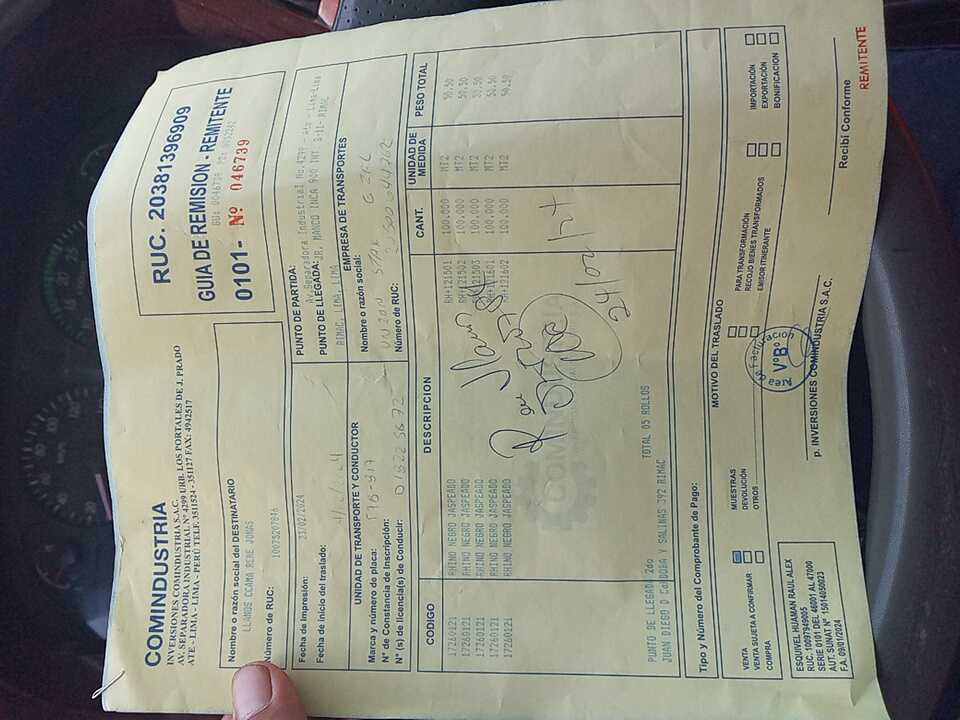 COMINDUSTRIA
INVERSIONES COMINDUSTRIA S.A.C.
AV. SEPARADORA INDUSTRIAL N° 4299 URB. LOS PORTALES DE J. PRADO
ATE - LIMA - LIMA - PERÚ TELF. 3511524 - 351127 FAX: 4942517
RUC. 20381396909
GUIA DE REMISION - REMITENTE
0101- Nº 046739
Nombre o razón social del DESTINATARIO
LLAMOS CCAMA RENE JONAS
Número de RUC: 10073207846
Fecha de Impresión: 23/02/2024
Fecha de inicio del traslado:
PUNTO DE PARTIDA:
Av.Separadora Industrial No.4299 - Ate - Lima-Lima
PUNTO DE LLEGADA: JR. MANCO INCA 900 INT. S-11- RIMAC
RIMAC, LIMA, LIMA
UNIDAD DE TRANSPORTE Y CONDUCTOR
Marca y número de placa:
N° de Constancia de Inscripción:
N° (s) de licencia(s) de Conducir:
EMPRESA DE TRANSPORTES
Nombre o razón social:
Número de RUC:
CODIGO DESCRIPCION CANT. UNIDAD DE MEDIDA PESO TOTAL
17260121 RHINO NEGRO JASPEADO RH+121501 100.000 MT2 50.50
17260121 RHINO NEGRO JASPEADO RH+121502 100.000 MT2 50.50
17260121 RHINO NEGRO JASPEADO RH+121503 100.000 MT2 50.50
17260121 RHINO NEGRO JASPEADO RH+121601 100.000 MT2 50.50
17260121 RHINO NEGRO JASPEADO RH+121602 100.000 MT2 50.50
24/02/24
TOTAL 05 ROLLOS
PUNTO DE LLEGADA 2do
JUAN DIEGO D CORDOBA Y SALINAS 392 RIMAC
Tipo y Número del Comprobante de Pago:
MOTIVO DEL TRASLADO
VENTA
VENTA SUJETA A CONFIRMAR
COMPRA
MUESTRAS
DEVOLUCIÓN
OTROS
PARA TRANSFORMACIÓN
RECOJO BIENES TRANSFORMADOS
EMISOR ITINERANTE
IMPORTACIÓN
EXPORTACIÓN
BONIFICACION
ESQUIVEL HUAMAN RAUL ALEX
RUC. 10097949005
SERIE 0101 DEL 46001 AL 47000
AUT. SUNAT N° 15014050023
F.A. 09/01/2024
Area de Facturacion
V°B°
p. INVERSIONES COMINDUSTRIA S.A.C.
Recibí Conforme
REMITENTE